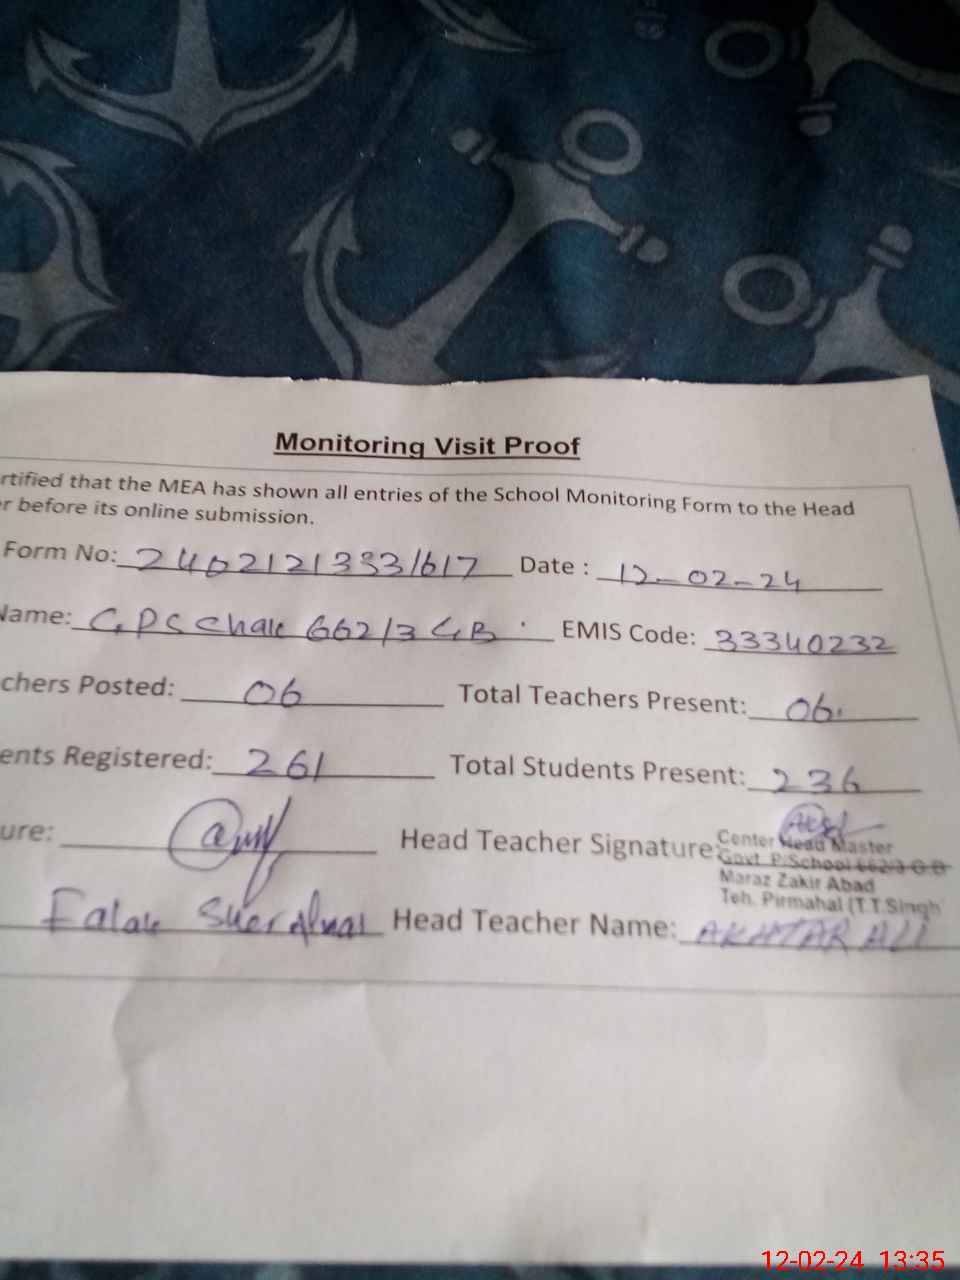 Monitoring Visit Proof
rtified that the MEA has shown all entries of the School Monitoring Form to the Head
r before its online submission.
Form No: 2402121331617 Date : 12-02-24
Name: GPS Chak 662/3 GB EMIS Code: 33340232
chers Posted: 06 Total Teachers Present: 06
ents Registered: 261 Total Students Present: 236
ure: Head Teacher Signature
Center Head Master
Govt. P/School 662/3 G.B
Maraz Zakir Abad
Teh. Pirmahal (T.T.Singh
Falak Head Teacher Name: AKHTAR ALI
12-02-24 13:35